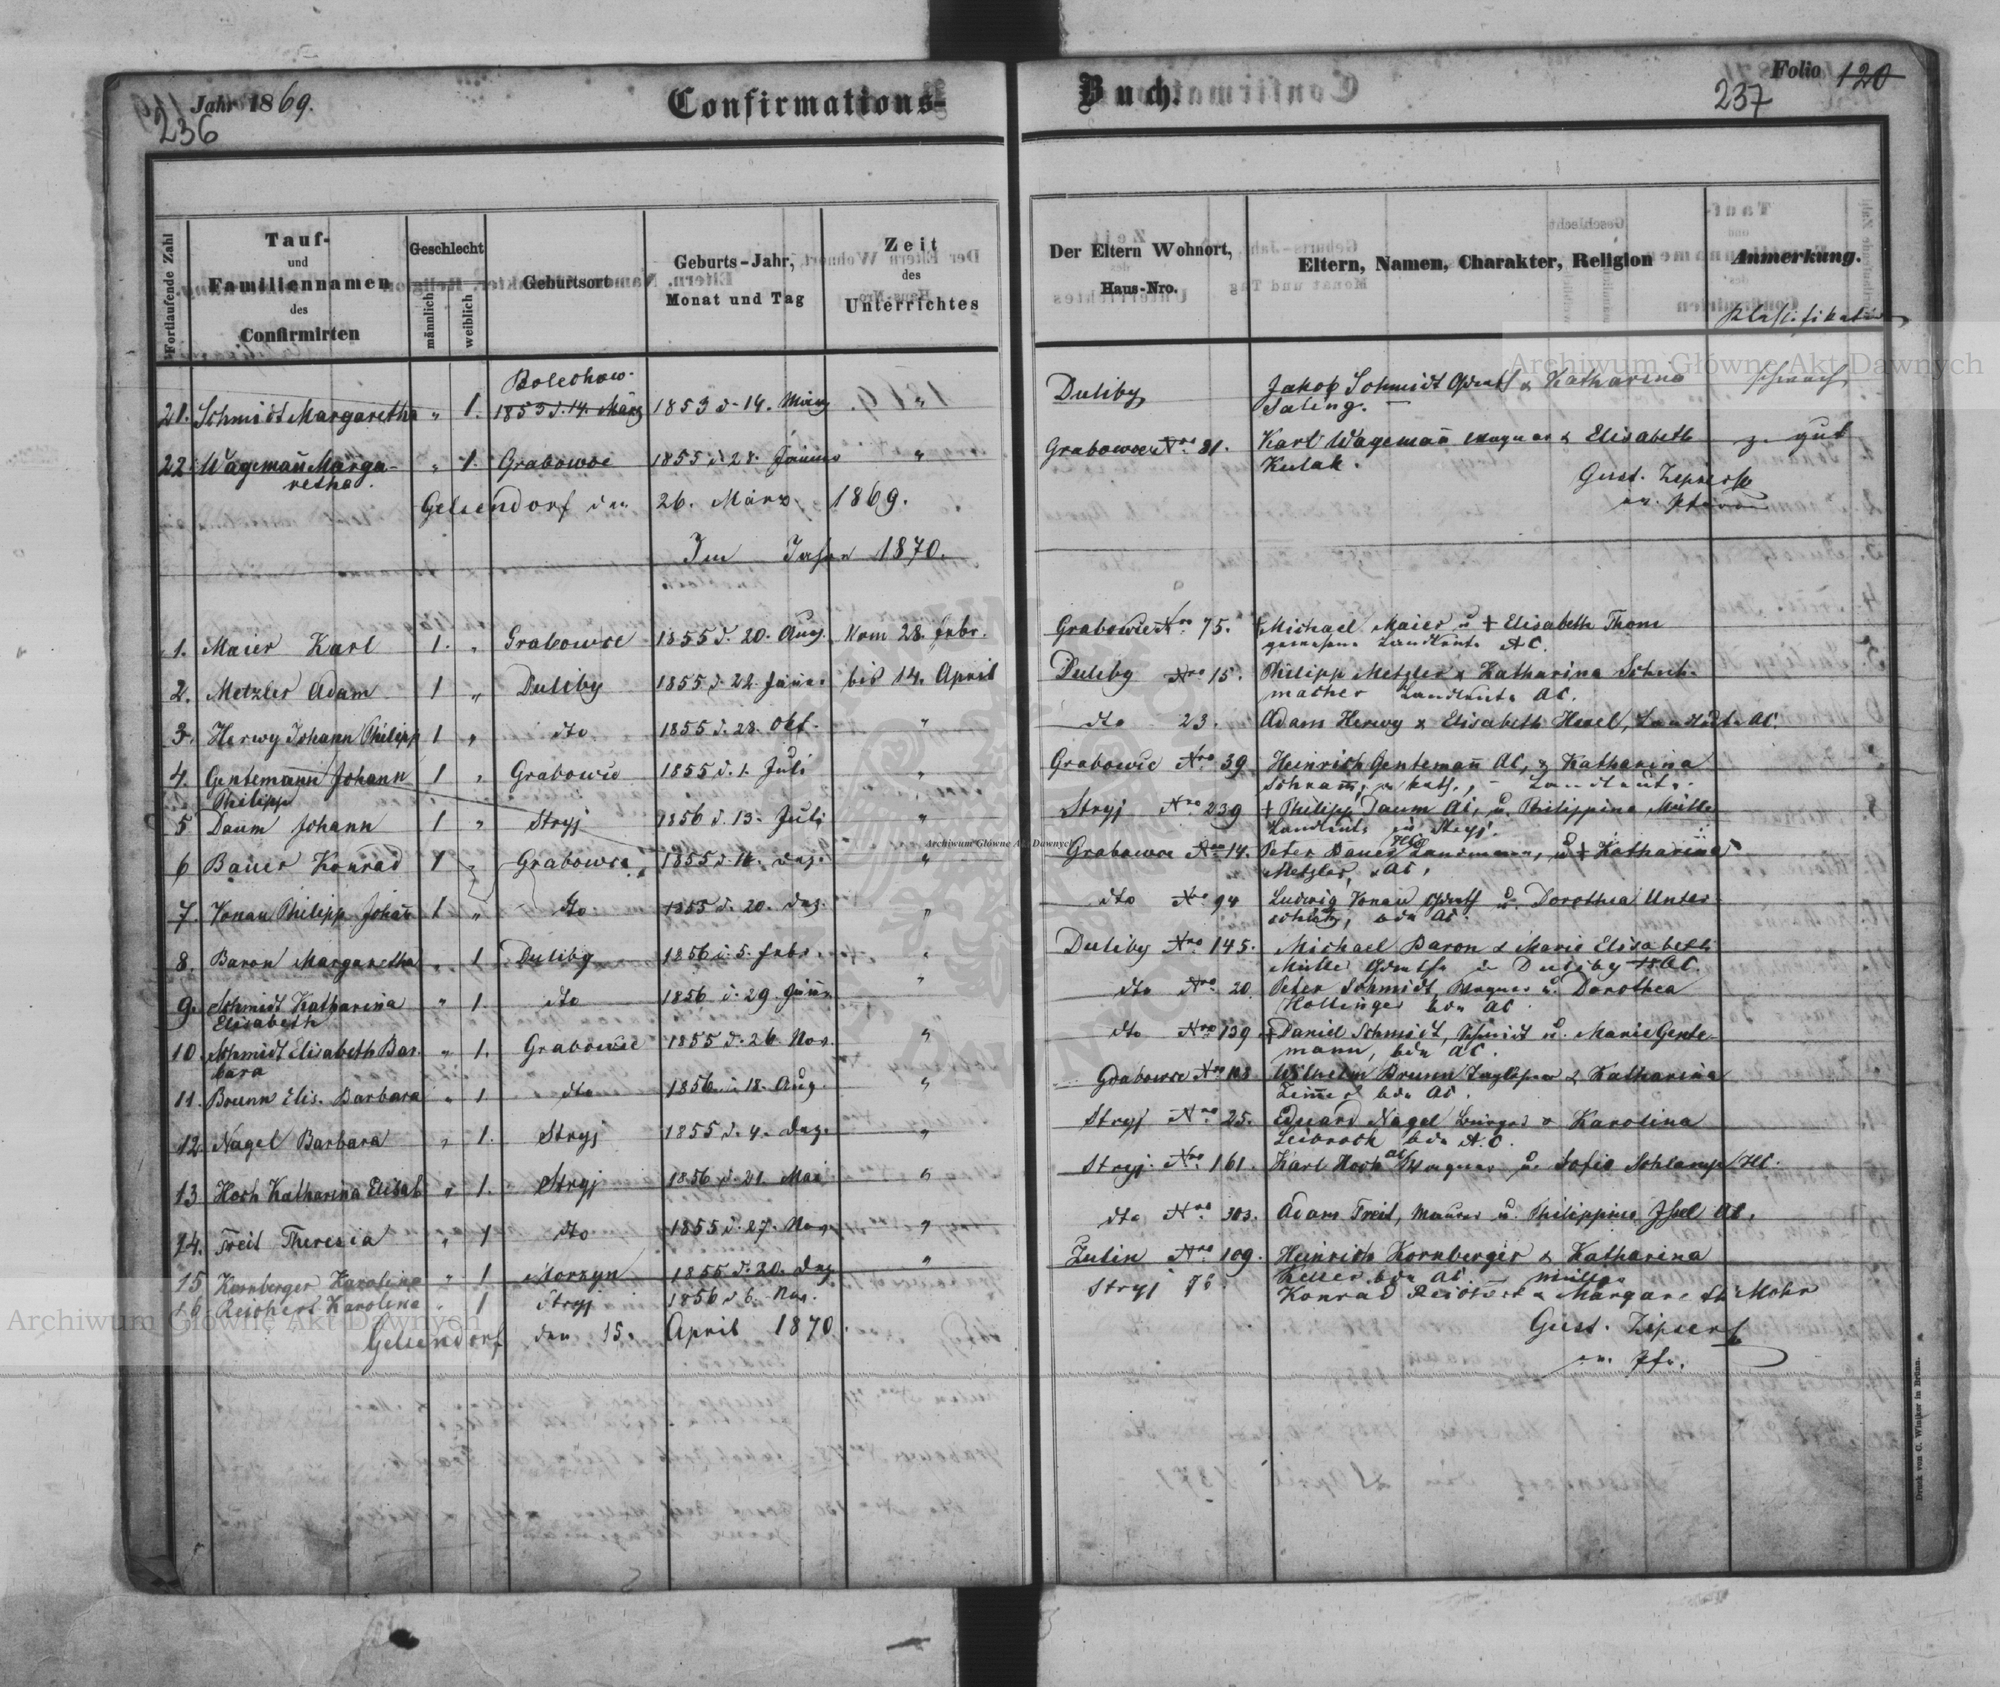 Jahr 1869.
236
Confirmations-
Buch.
Folio 120
237
Fortlaufende Zahl
Tauf-
und
Familiennamen
des
Confirmirten
Geschlecht
männlich
weiblich
Geburtsort
Geburts-Jahr,
Monat und Tag
Zeit
des
Unterrichtes
Der Eltern Wohnort,
Haus-Nro.
Eltern, Namen, Charakter, Religion
Anmerkung.
Klassifikation
Bolechow.
21. Schmidt Margaretha " 1. 1853 d. 14. März 1853 d. 14. März " Duliby Jakob Schmidt & Katharina schwach
Saling.
22 Wagemañ Marga- " 1. Grabowce 1855 d. 28. Jänner " Grabowce Nro 81. Karl Wagemañ Wagner & Elisabeth z. gut
retha. Kulak.
Gelsendorf den 26. März 1869. Gust. Zipser
Im Jahre 1870.
1. Maier Karl 1. " Grabowce 1855 d. 20. Aug. Vom 28. Febr. Grabowce Nro 75. Michael Maier u + Elisabeth Thom
Landleute AC.
2. Metzler Adam 1 " Duliby 1855 d. 22. Jänn. bis 14. April Duliby Nro 15. Philipp Metzler & Katharina Schuh-
macher Landleute AC.
3. Herwy Johann Philipp 1 " dto 1855 d. 28. Okt. " dto 23. Adam Herwy & Elisabeth Hexel, Landleute AC.
4. Gentemann Johann 1 " Grabowce 1855 d. 1. Juli " Grabowce Nro 39 Heinrich Gentemañ AC, & Katharina
Philipp Schram, kath., Landleute.
5 Daum Johann 1 " Stryj 1856 d. 13. Juli " Stryj Nro 239 + Philipp Daum AC, u. Philippina Müller
Landleute in Stryj.
6 Bauer Konrad 1 " Grabowce 1855 d. 16. Dez. " Grabowce Nro 14. Peter Bauer HC Landmann, u + Katharina
Metzler, AC.
7. Konau Philipp Johañ 1 " dto 1855 d. 20. Dez. " dto Nro 94 Ludwig Konau u. Dorothea Unter
schütz, bde AC.
8. Baron Margaretha " 1 Duliby 1856 d. 5. Febr. " Duliby Nro 145. Michael Baron & Marie Elisabeth
Müller in Duliby AC.
9. Schmidt Katharina " 1. dto 1856 d. 29. Jänn. " dto Nro 20 Peter Schmidt, Wagner u. Dorothea
Elisabeth Hollinger bde AC
10. Schmidt Elisabeth Bar- " 1. Grabowce 1855 d. 26 Nov. " dto Nro 139 + Daniel Schmidt, Schmidt u. Marie Gente-
bara mann, bde AC.
11. Brunn Elis. Barbara " 1 dto 1856 d. 18. Aug. " Grabowce Nro 108 Wilhelm Brunn & Katharina
Zimer bde AC.
12. Nagel Barbara " 1. Stryj 1855 d. 4. Dez. " Stryj Nro 25. Eduard Nagel Bürger & Karolina
Leibrock bde A.C.
13 Hoch Katharina Elisab. " 1. Stryj 1856 d. 21. Mai " Stryj. Nro 161. Karl Hoch AC Wagner u. Sofie Schlamp HC.
14. Freit Theresia " 1 dto 1855 d. 27. Nov. " dto Nro 303. Adam Freit, Maurer u. Philippine Isel AC.
15 Kornberger Karolina " 1 Morszyn 1855 d. 20. Dez. " Zulin Nro 109. Heinrich Kornberger & Katharina
Keller bde AC.
16. Reichert Karolina " 1 Stryj 1856 d. 6. Nov. Stryj 78 Konrad Reichert Müller & Margareth Mohr
Gelsendorf den 15. April 1870. Gust. Zipser
Pfr.
Druck von C. Winiker in Brünn.
Archiwum Główne Akt Dawnych
Archiwum Główne Akt Dawnych
Archiwum Główne Akt Dawnych